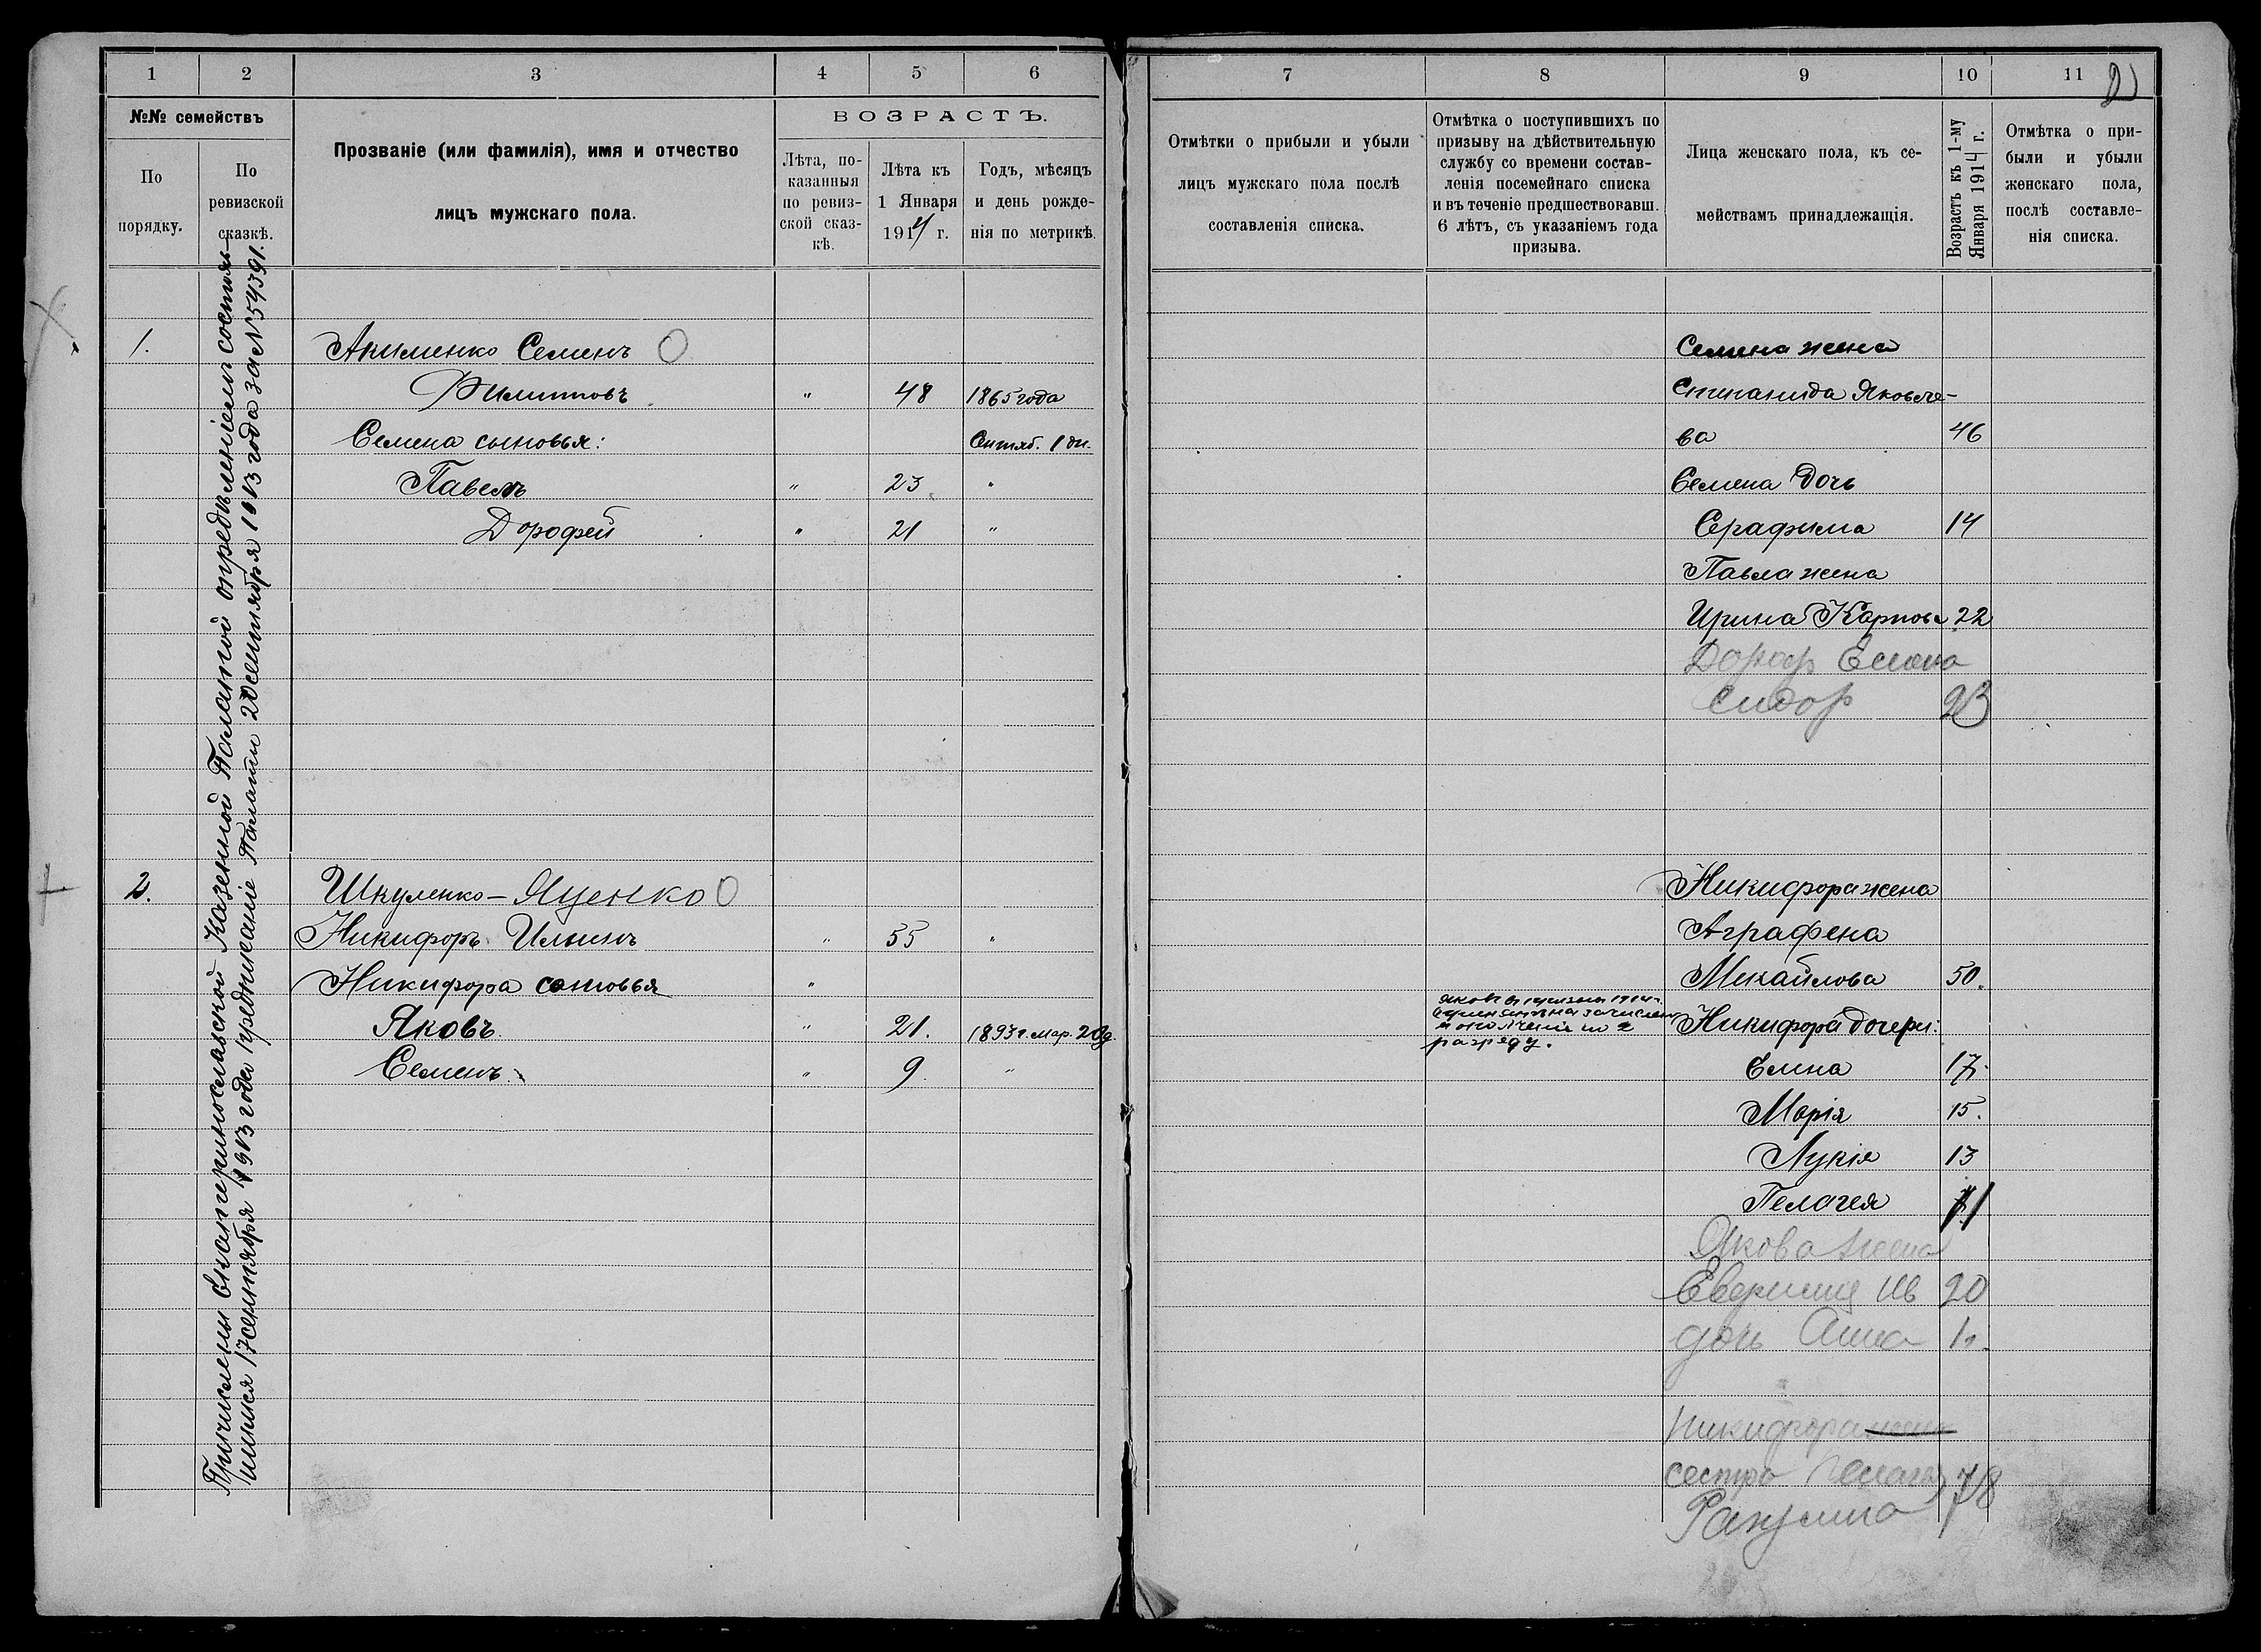 1
2
3
4
5
6
№№ семействъ
По порядку.
По ревизской сказкѣ.
Прозваніе (или фамилія), имя и отчество
лицъ мужскаго пола.
ВОЗРАСТЪ.
Лѣта, по-
казанныя
по ревиз-
ской сказ-
кѣ.
Лѣта къ
1 Января
1914 г.
Годъ, мѣсяцъ
и день рожде-
нія по метрикѣ.
Причислены Екатеринославской Казенной Палатой опредѣленіемъ состояв-
шимся 17 сентября 1913 года предписаніе Палаты 20 сентября 1913 года за № 54391.
1.
Акименко Семенъ
Филиповъ " 48 1865 года
Семена сыновья: Сентяб. 1 дн.
Павелъ " 23 "
Дорофей " 21 "
2.
Шкуленко-Яценко
Никифоръ Ильинъ " 55 "
Никифора сыновья "
Яковъ " 21. 1893 г. Мар. 20 д.
Семенъ " 9. "
7
8
9
10
11
Отмѣтки о прибыли и убыли
лицъ мужскаго пола послѣ
составленія списка.
Отмѣтка о поступившихъ по
призыву на дѣйствительную
службу со времени состав-
ленія посемейнаго списка
и въ теченіе предшествовавш.
6 лѣтъ, съ указаніемъ года
призыва.
Лица женскаго пола, къ се-
мействамъ принадлежащія.
Возрастъ къ 1-му
Января 1914 г.
Отмѣтка о при-
были и убыли
женскаго пола,
послѣ составле-
нія списка.
Семена жена
Степанида Яковле-
ва 46
Семена дочь
Серафима 14
Павла жена
Ирина Карпова 22
Дороф Елена
Сидор 23
Никифора жена
Аграфена
Михайлова 50.
Яковъ въ призывъ 1914 г.
зачисленъ
въ ополченіе 2
разряду.
Никифора дочери:
Елена 17.
Марія 15.
Лукія 13
Пелагея 11
Якова жена
Ив 20
дочь Анна 1
Никифора жена
сестра Пелагея 78